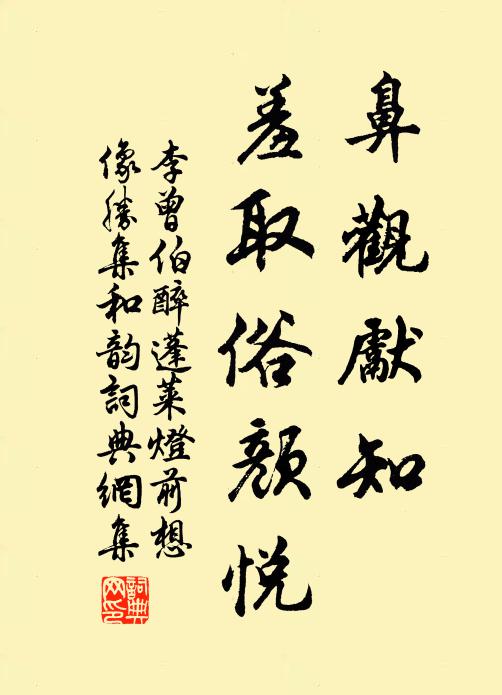 鼻觀獻知
羞取俗顏悅
李曾伯醉蓬萊燈前想
像勝集和韵詞典網集
詞典网印